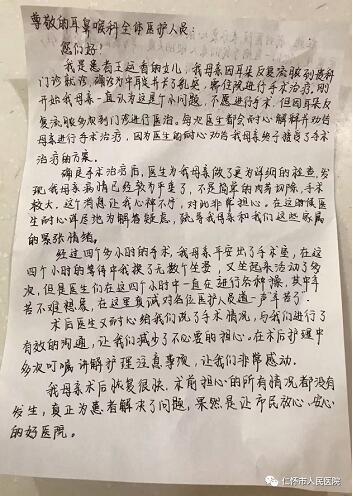 尊敬的耳鼻喉科全体医护人员:
您们好!
我是患者王远香的女儿,我母亲因耳朵反复流脓到贵科
门诊就诊,确诊为中耳炎并长了乳突,需住院进行手术治疗,刚
开始我母亲一直认为这是个小问题,不愿进行手术,但因耳朵反
复流脓多次到门诊进行医治。每次医生都会耐心解释并劝告
母亲进行手术治疗,因为医生的耐心劝告我母亲终于接受了手术
治疗的方案。
确定手术治疗后,医生为我母亲做了更为详细的检查,发
现我母亲病情已经较为严重了,不是简单的肉芽切除,手术
较大,这个消息让我心神不宁,对此非常担心。在这时候医
生耐心详尽地为解答疑点,疏导母亲和我们这些家属
的紧张情绪。
经过四个多小时的手术,我母亲平安出了手术室,在这
四个小时的等待中我换了无数个坐姿,又坐起来活动了多
次,但是医生们在这四个小时中一直在进行各种操,其中辛
苦不难想象,在这里真诚对各位医护人员道一声辛苦了!
术后医生又耐心给我们说了手术情况,与我们进行了
有效的沟通,让我们减少了不必要的担心。在术后护理中
多次叮嘱讲解护理注意事项,让我们非常感动。
我母亲术后恢复很快,术前担心的所有情况都没有
发生,真正为患者解决了问题,果然是让市民放心、安心
的好医院。
仁怀市人民医院